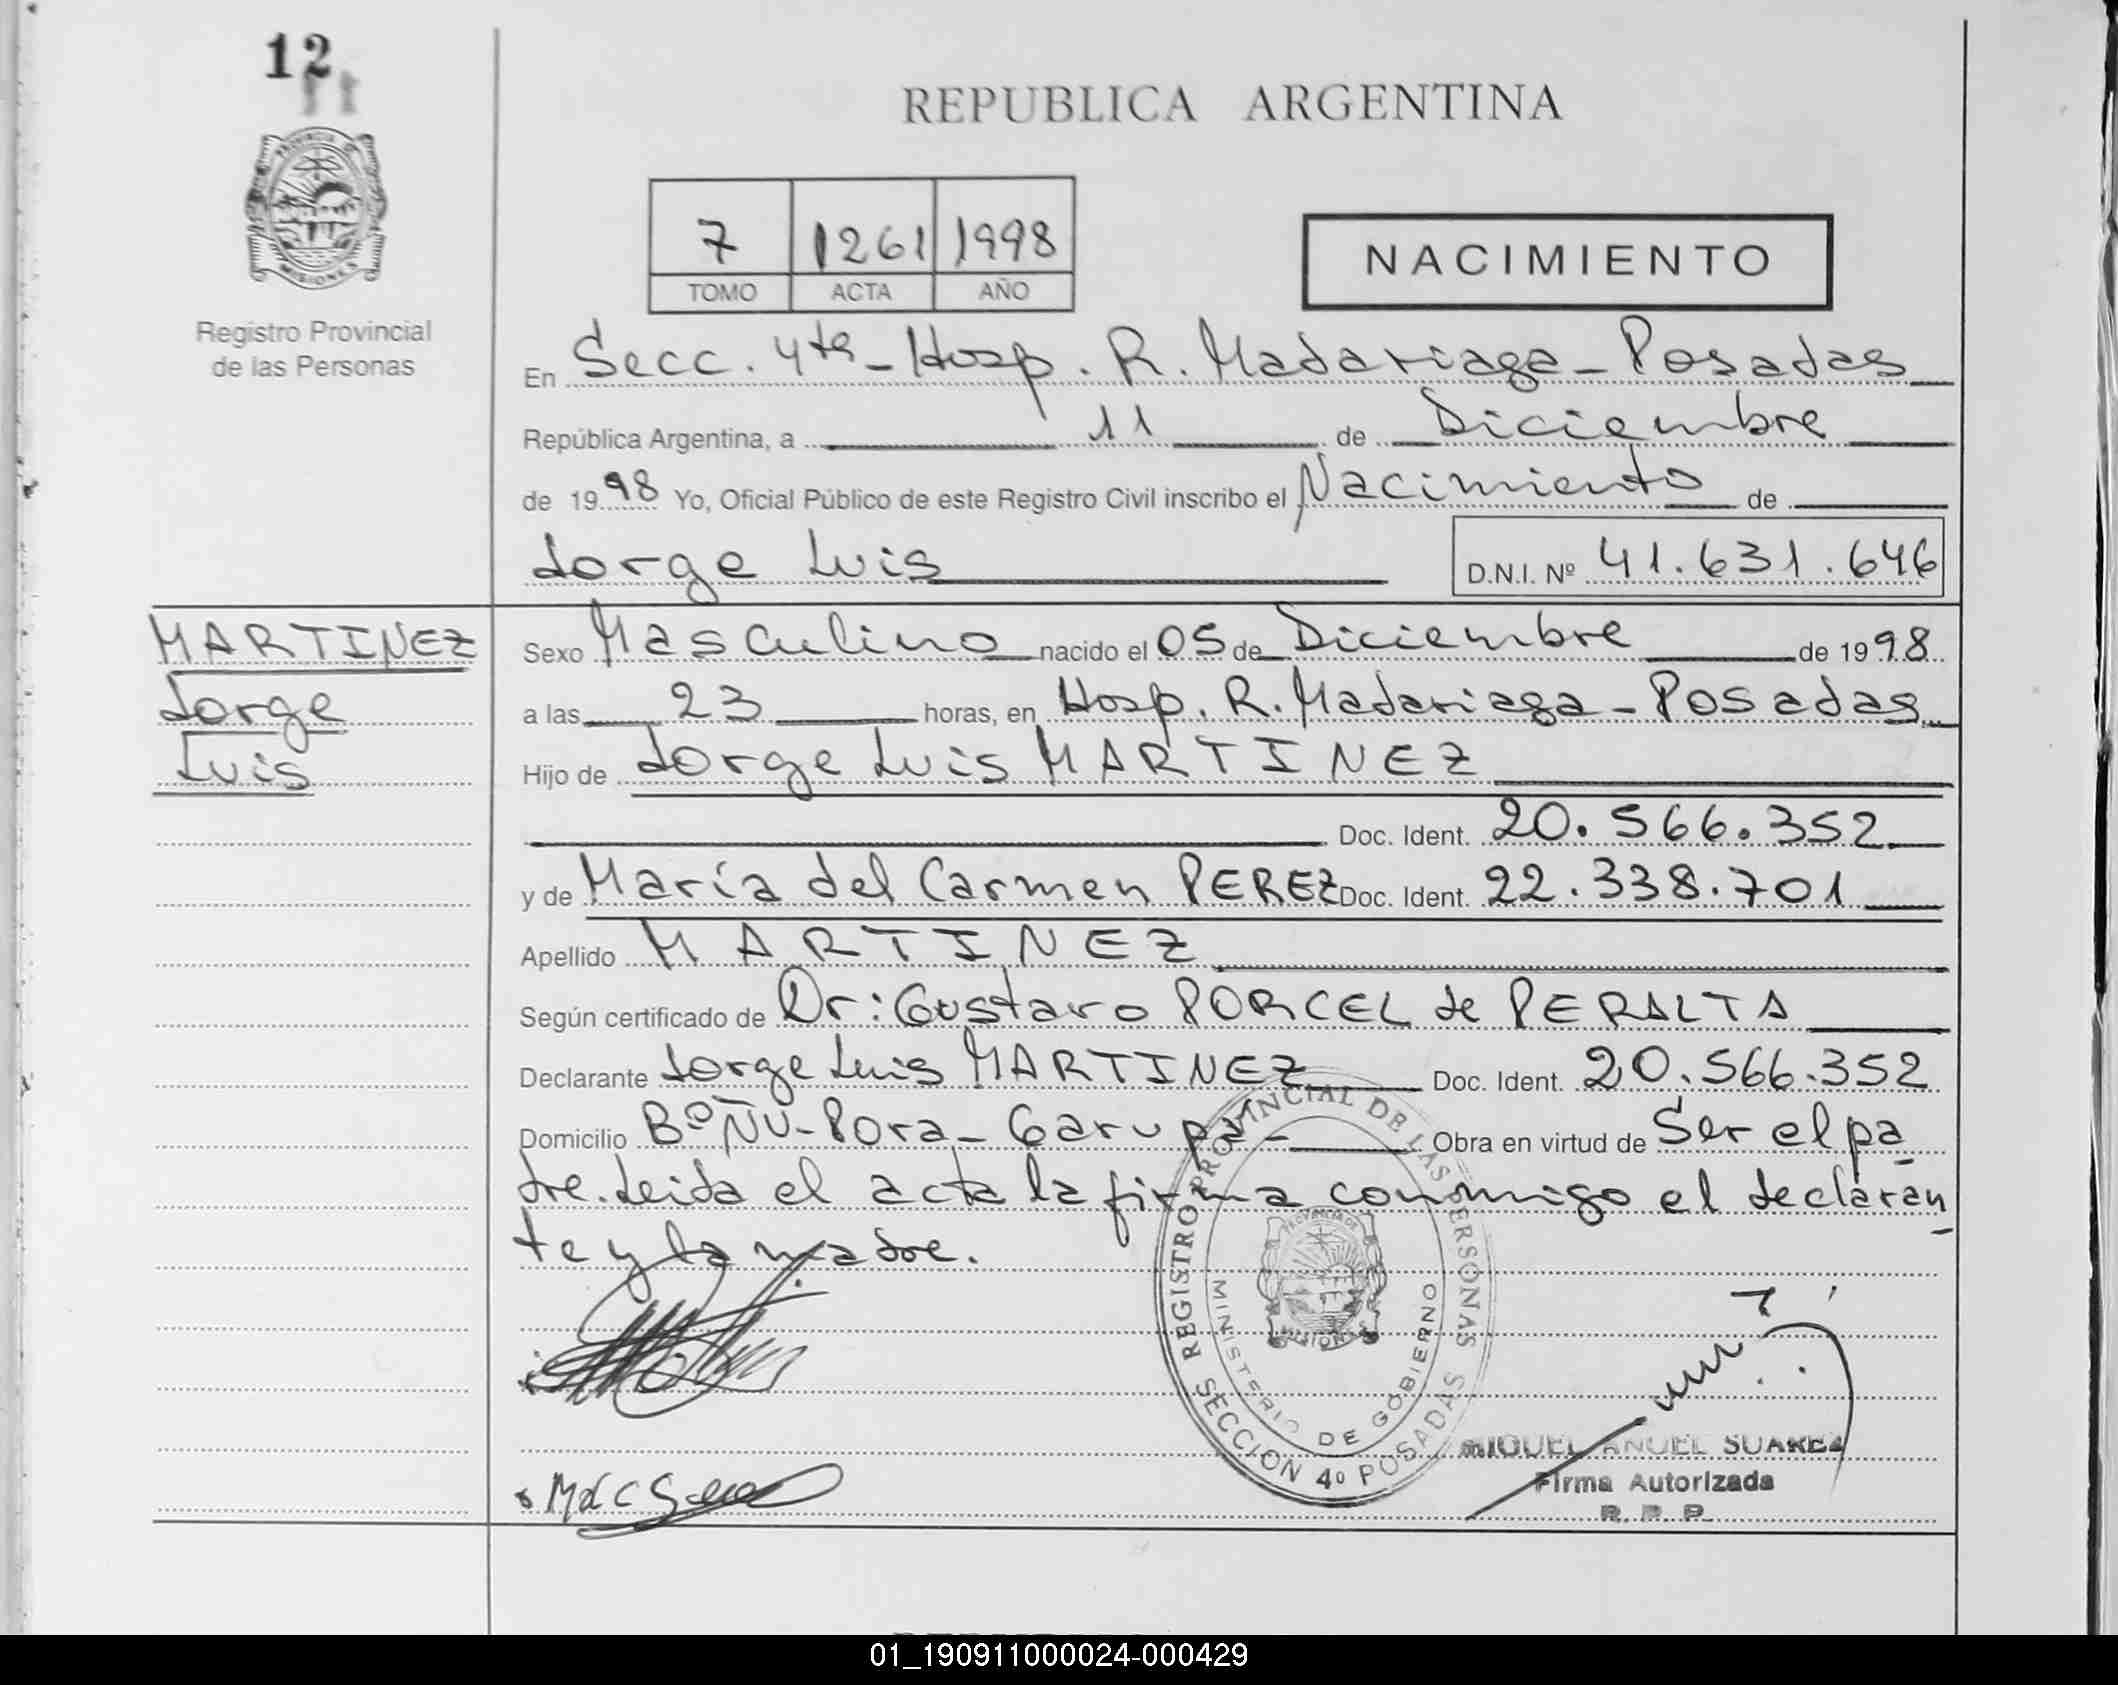 12
REPUBLICA ARGENTINA
PROVINCIA DE
MISIONES
Registro Provincial
de las Personas
7 1261 1998
TOMO ACTA AÑO
NACIMIENTO
En Secc. 4ta - Hosp. R. Madariaga - Posadas
República Argentina, a 11 de Diciembre
de 1998 Yo, Oficial Público de este Registro Civil inscribo el Nacimiento de
Jorge Luis D.N.I. Nº 41.631.646
MARTINEZ
Jorge
Luis
Sexo Masculino nacido el 05 de Diciembre de 1998
a las 23 horas, en Hosp. R. Madariaga - Posadas
Hijo de Jorge Luis MARTINEZ
Doc. Ident. 20.566.352
y de María del Carmen PEREZ Doc. Ident. 22.338.701
Apellido MARTINEZ
Según certificado de Dr: Gustavo PORCEL de PERALTA
Declarante Jorge Luis MARTINEZ Doc. Ident. 20.566.352
Domicilio Bº ÑU-Pora - Garupa - Obra en virtud de Ser el pa
dre. Leida el acta la firma conmigo el declaran
te y la madre.
REGISTRO PROVINCIAL DE LAS PERSONAS
MINISTERIO DE GOBIERNO
SECCION 4º POSADAS
MISIONES
MIGUEL ANGEL SUAREZ
Firma Autorizada
R. P. P.
01_190911000024-000429